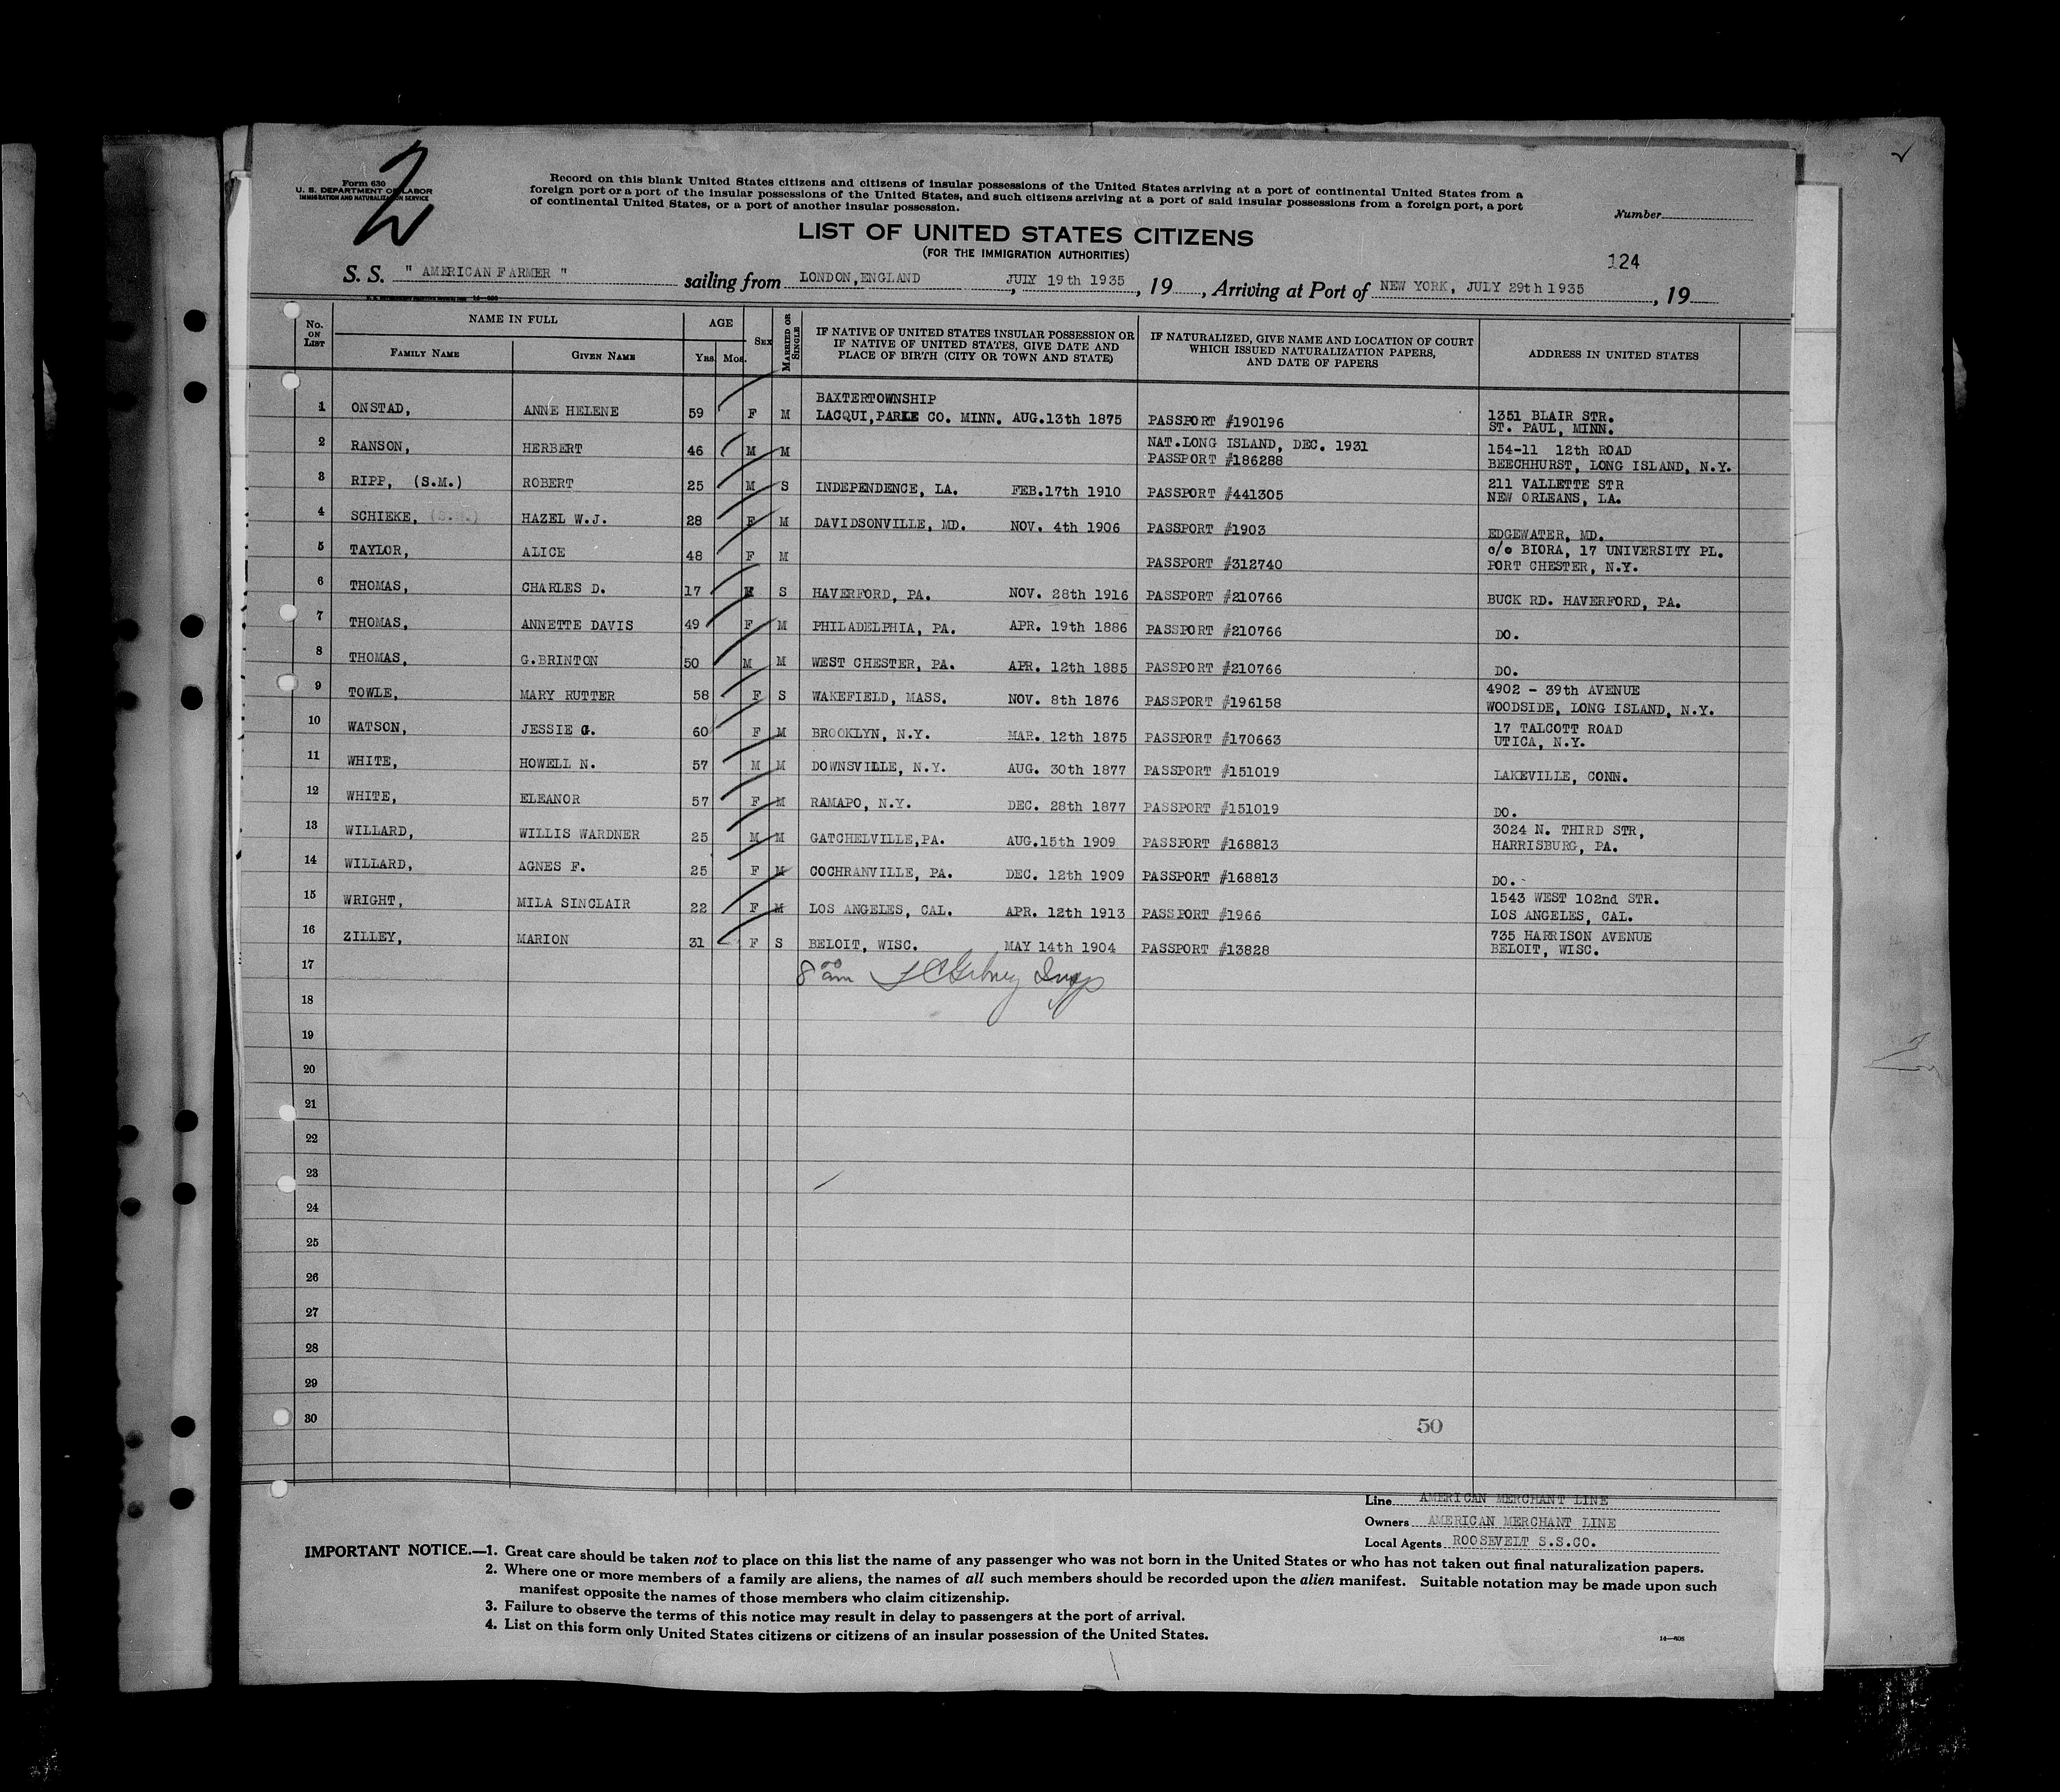 2
Form 630
U. S. DEPARTMENT OF LABOR
IMMIGRATION AND NATURALIZATION SERVICE
Record on this blank United States citizens and citizens of insular possessions of the United States arriving at a port of continental United States from a
foreign port or a port of the insular possessions of the United States, and such citizens arriving at a port of said insular possessions from a foreign port, a port
of continental United States, or a port of another insular possession.
Number
LIST OF UNITED STATES CITIZENS
(FOR THE IMMIGRATION AUTHORITIES)
124
S. S. " AMERICAN FARMER " sailing from LONDON, ENGLAND , JULY 19th 1935 , 19 , Arriving at Port of NEW YORK, JULY 29th 1935 , 19
No. ON LIST
NAME IN FULL
FAMILY NAME
GIVEN NAME
AGE
YRS. MOS.
SEX
MARRIED OR SINGLE
IF NATIVE OF UNITED STATES INSULAR POSSESSION OR
IF NATIVE OF UNITED STATES, GIVE DATE AND
PLACE OF BIRTH (CITY OR TOWN AND STATE)
IF NATURALIZED, GIVE NAME AND LOCATION OF COURT
WHICH ISSUED NATURALIZATION PAPERS,
AND DATE OF PAPERS
ADDRESS IN UNITED STATES
BAXTERTOWNSHIP
1 ONSTAD, ANNE HELENE 59 F M LACQUI,PARLE CO. MINN. AUG.13th 1875 PASSPORT #190196 1351 BLAIR STR.
ST. PAUL, MINN.
2 RANSON, HERBERT 46 M M NAT.LONG ISLAND, DEC. 1931 154-11 12th ROAD
PASSPORT #186288 BEECHHURST, LONG ISLAND, N.Y.
3 RIPP, (S.M.) ROBERT 25 M S INDEPENDENCE, LA. FEB.17th 1910 PASSPORT #441305 211 VALLETTE STR
NEW ORLEANS, LA.
4 SCHIEKE, (S.M.) HAZEL W.J. 28 F M DAVIDSONVILLE, MD. NOV. 4th 1906 PASSPORT #1903 EDGEWATER, MD.
5 TAYLOR, ALICE 48 F M PASSPORT #312740 c/o BIORA, 17 UNIVERSITY PL.
PORT CHESTER, N.Y.
6 THOMAS, CHARLES D. 17 S HAVERFORD, PA. NOV. 28th 1916 PASSPORT #210766 BUCK RD. HAVERFORD, PA.
7 THOMAS, ANNETTE DAVIS 49 F M PHILADELPHIA, PA. APR. 19th 1886 PASSPORT #210766 DO.
8 THOMAS, G.BRINTON 50 M M WEST CHESTER, PA. APR. 12th 1885 PASSPORT #210766 DO.
9 TOWLE, MARY RUTTER 58 F S WAKEFIELD, MASS. NOV. 8th 1876 PASSPORT #196158 4902 - 39th AVENUE
WOODSIDE, LONG ISLAND, N.Y.
10 WATSON, JESSIE G. 60 F M BROOKLYN, N.Y. MAR. 12th 1875 PASSPORT #170663 17 TALCOTT ROAD
UTICA, N.Y.
11 WHITE, HOWELL N. 57 M M DOWNSVILLE, N.Y. AUG. 30th 1877 PASSPORT #151019 LAKEVILLE, CONN.
12 WHITE, ELEANOR 57 F M RAMAPO, N.Y. DEC. 28th 1877 PASSPORT #151019 DO.
13 WILLARD, WILLIS WARDNER 25 M M GATCHELVILLE,PA. AUG.15th 1909 PASSPORT #168813 3024 N. THIRD STR,
HARRISBURG, PA.
14 WILLARD, AGNES F. 25 F M COCHRANVILLE, PA. DEC. 12th 1909 PASSPORT #168813 DO.
15 WRIGHT, MILA SINCLAIR 22 F M LOS ANGELES, CAL. APR. 12th 1913 PASSPORT #1966 1543 WEST 102nd STR.
LOS ANGELES, CAL.
16 ZILLEY, MARION 31 F S BELOIT, WISC. MAY 14th 1904 PASSPORT #13828 735 HARRISON AVENUE
BELOIT, WISC.
17 8 00 am Insp
18
19
20
21
22
23
24
25
26
27
28
29
30 50
Line AMERICAN MERCHANT LINE
Owners AMERICAN MERCHANT LINE
Local Agents ROOSEVELT S.S.CO.
IMPORTANT NOTICE.—1. Great care should be taken not to place on this list the name of any passenger who was not born in the United States or who has not taken out final naturalization papers.
2. Where one or more members of a family are aliens, the names of all such members should be recorded upon the alien manifest. Suitable notation may be made upon such
manifest opposite the names of those members who claim citizenship.
3. Failure to observe the terms of this notice may result in delay to passengers at the port of arrival.
4. List on this form only United States citizens or citizens of an insular possession of the United States.